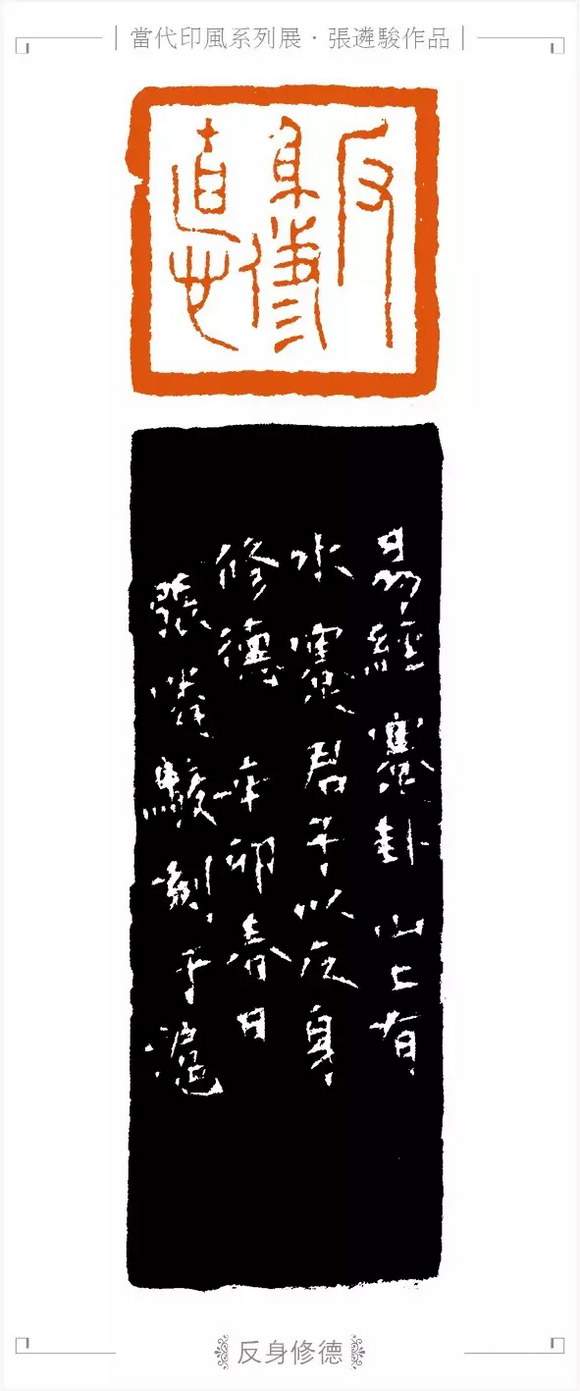 當代印風系列展·張遴駿作品
反身修德
易經蹇卦山上有
水蹇君子以反身
修德 辛卯春日
張遴駿刻于滬
反身修德